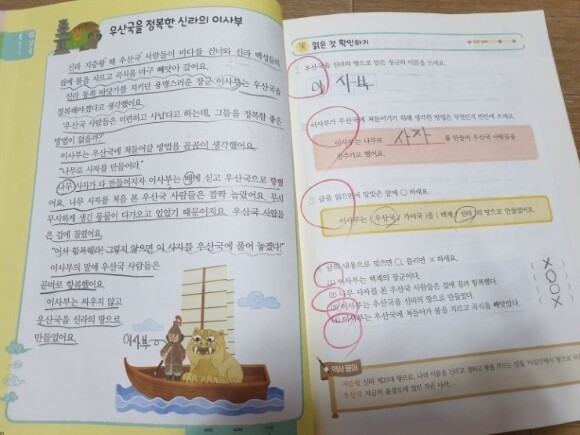 우산국을 정복한 신라의 이사부
신라 지증왕 때 우산국 사람들이 바다를 건너와 신라 백성들의
집에 불을 지르고 곡식을 마구 빼앗아 갔어요.
신라 동쪽 바닷가를 지키던 용맹스러운 장군 이사부는 우산국을
정복해야겠다고 생각했어요.
'우산국 사람들은 미련하고 사납다고 하는데, 그들을 정복할 좋은
방법이 없을까?'
이사부는 우산국에 쳐들어갈 방법을 곰곰이 생각했어요.
"나무로 사자를 만들어라."
나무 사자가 다 만들어지자 이사부는 배에 싣고 우산국으로 향했
어요. 나무 사자를 처음 본 우산국 사람들은 깜짝 놀랐어요. 무시
무시하게 생긴 동물이 다가오고 있었기 때문이지요. 우산국 사람들
은 겁에 질렸어요.
"어서 항복해라! 그렇지 않으면 이 사자를 우산국에 풀어 놓겠다!"
이사부의 말에 우산국 사람들은
곧바로 항복했어요.
이사부는 싸우지 않고
우산국을 신라의 땅으로
만들었어요.
이사부
읽은 것 확인하기
우산국을 신라의 땅으로 만든 장군의 이름을 쓰세요.
이사부
이사부가 우산국에 쳐들어가기 위해 생각한 방법은 무엇인지 빈칸에 쓰세요.
이사부는 나무로 사자 를 만들어 우산국 사람들을
겁주기로 했어요.
글을 읽으면서 알맞은 말에 ○ 하세요.
이사부는 ( 우산국 / 가야국 )을 ( 백제 / 신라 )의 땅으로 만들었어요.
글의 내용으로 맞으면 ○, 틀리면 × 하세요.
(1) 이사부는 백제의 장군이다. ×
(2) 나무 사자를 본 우산국 사람들은 겁에 질려 항복했다. ○
(3) 이사부는 우산국을 신라의 땅으로 만들었다. ○
(4) 이사부는 우산국에 쳐들어가 불을 지르고 곡식을 빼앗았다. ×
역사 용어
지증왕 신라 제22대 왕으로, 나라 이름을 신라로
우산국 지금의 울릉도에 있던 작은 나라.